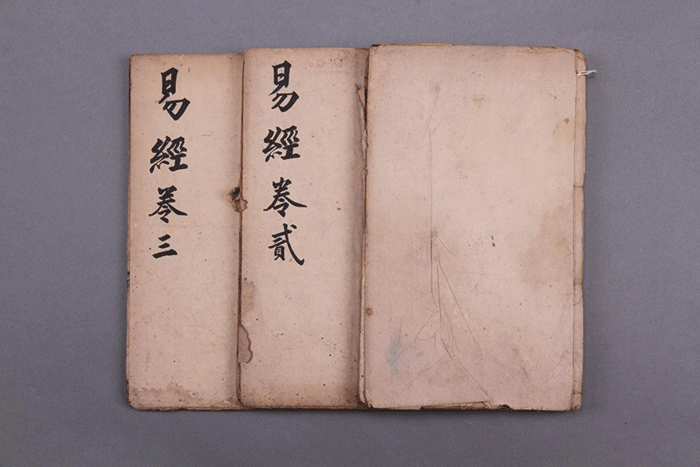 易經卷貳
易經卷三